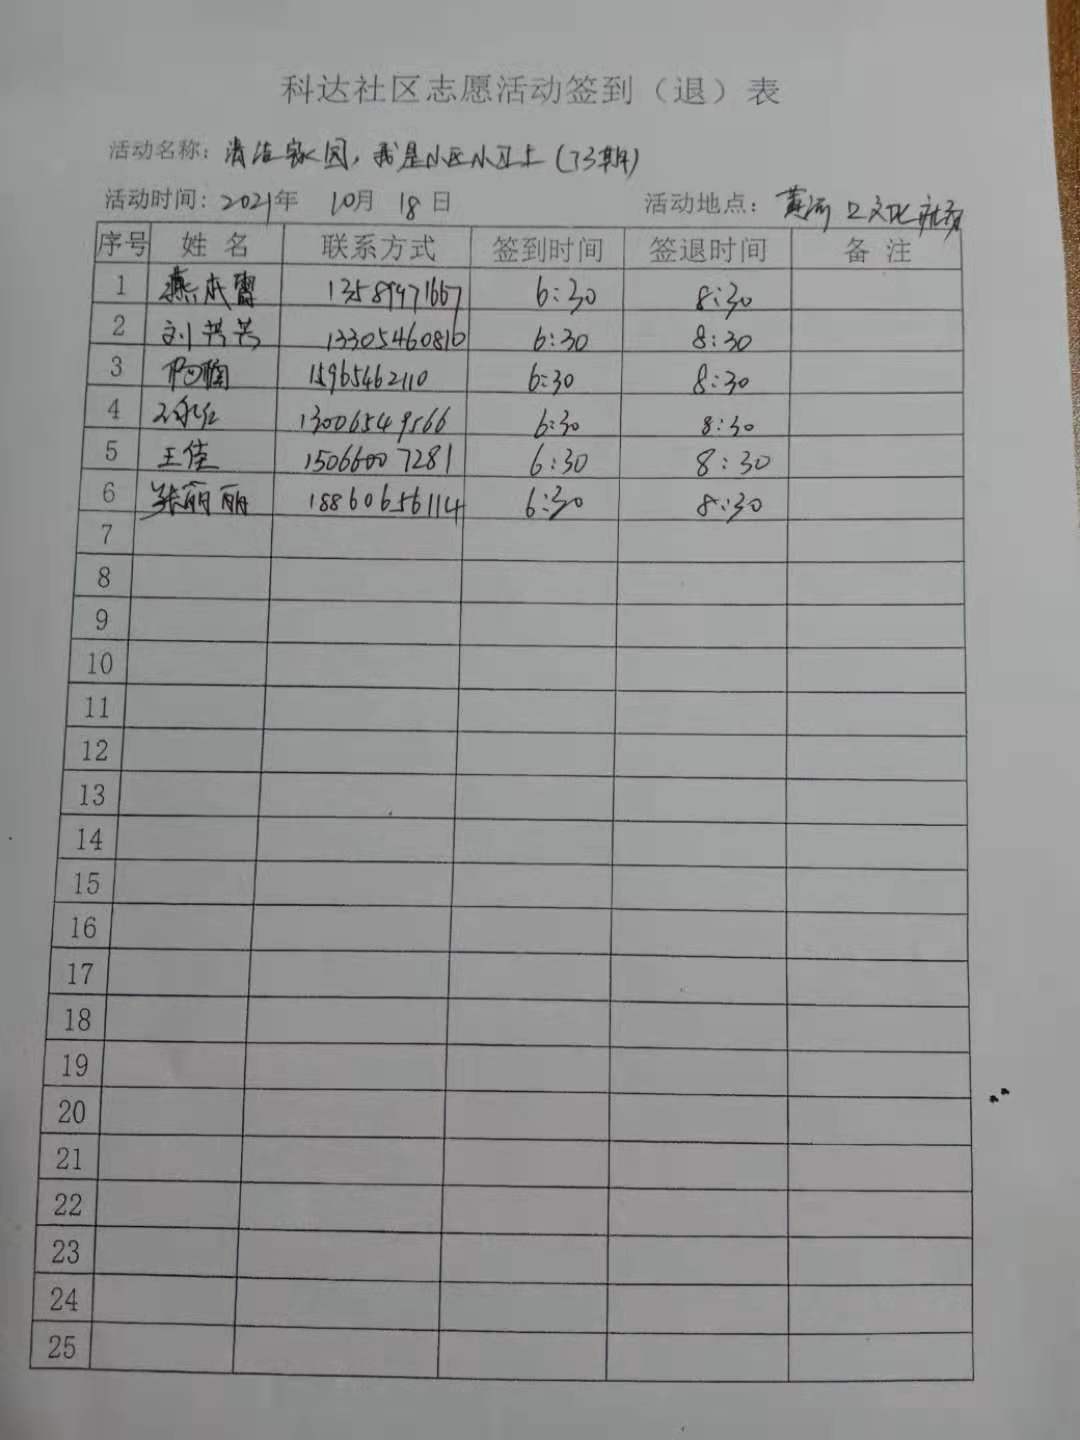 科达社区志愿活动签到（退）表
活动名称：清洁家园，我是小区小卫士（73期）
活动时间：2021年 10月 18日 活动地点：黄河口文化
序号 姓名 联系方式 签到时间 签退时间 备注
1 燕本雷 13589971667 6:30 8:30
2 刘芳芳 13305460810 6:30 8:30
3 15965462110 6:30 8:30
4 13006549566 6:30 8:30
5 王佳 15066007281 6:30 8:30
6 张丽丽 18860656114 6:30 8:30
7
8
9
10
11
12
13
14
15
16
17
18
19
20
21
22
23
24
25